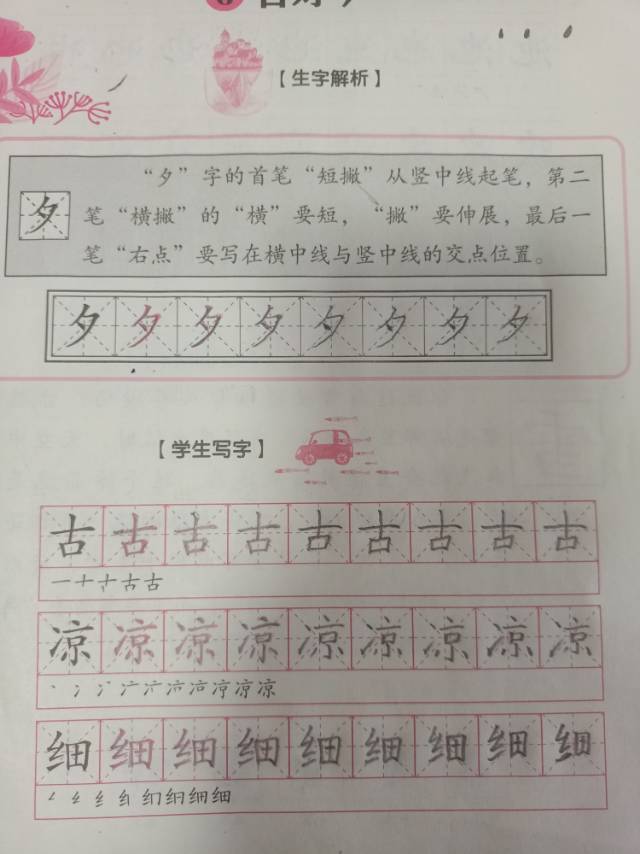 【生字解析】
夕
“夕”字的首笔“短撇”从竖中线起笔，第二
笔“横撇”的“横”要短，“撇”要伸展，最后一
笔“右点”要写在横中线与竖中线的交点位置。
夕夕夕夕夕夕夕夕
【学生写字】
古古古古古古古古古
一十古古
凉凉凉凉凉凉凉凉凉
凉凉
细细细细细细细细细
细